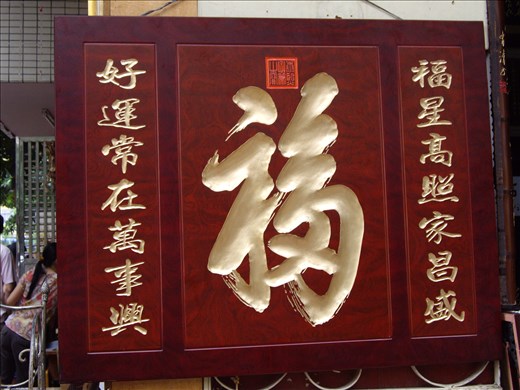 福星高照家昌盛
福
好運常在萬事興